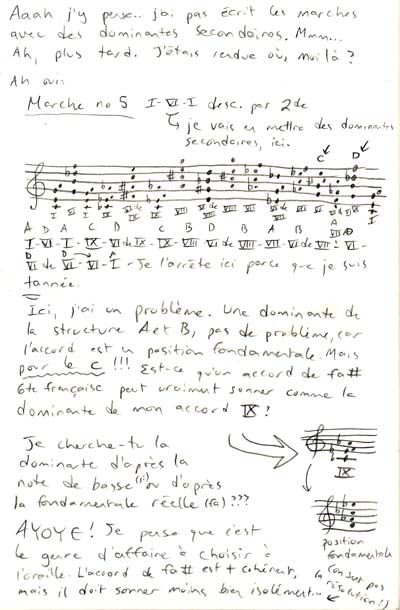 Aaah j'y pense... j'ai pas écrit les marches
avec des dominantes secondaires. Mmm...
Ah, plus tard. J'étais rendue où, moi là ?
Ah oui:
Marche no 5 I-VI-I desc. par 2de
↳ je vais en mettre des dominantes
secondaires, ici.
C D
I VI I IX
A D A C D C B D B A B A D
I-VI-I-IX-VI de IX-IX-VIII VI de VIII-VIII-VII-VI de VII! VI-
D D A
VI de VI-VI-I - Je l'arrête ici parce que je suis
tannée.
Ici, j'ai un problème. Une dominante de
la structure A et B, pas de problème, car
l'accord est en position fondamentale. Mais
pour le C !!! Est-ce qu'un accord de fa#
6te française peut vraiment sonner comme la
dominante de mon accord IX ?
Je cherche-tu la
dominante d'après la
note de basse (si) ou d'après
la fondamentale réelle (fa) ???
IX
AYOYE! Je pense que c'est
le genre d'affaire à choisir à
l'oreille. L'accord de fa# est + cohérent,
mais il doit sonner moins bien isolément...
position
fondamentale
(on sait pas
la résolution!)